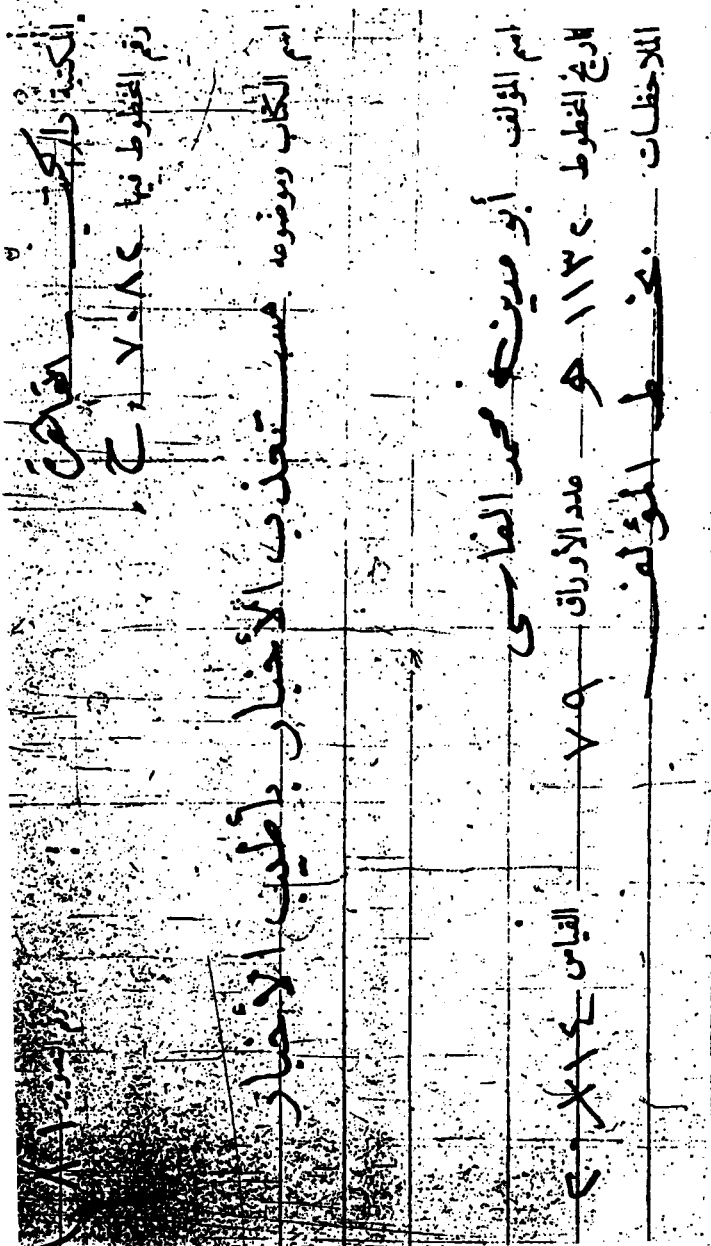 المكتبة دار كتب القاهرة
رقم المخطوط فيها ٧٠٨٢ ح
رقم التصوير
اسم الكتاب وموضوعه مستعذب الأخبار بأطيب الأخبار
اسم المؤلف أبو مدين محمد الفاسى
تاريخ المخطوط ١١٣٢ هـ عدد الأوراق ٧٩ القياس ١٤×٢٠
الملاحظات بخط المؤلف